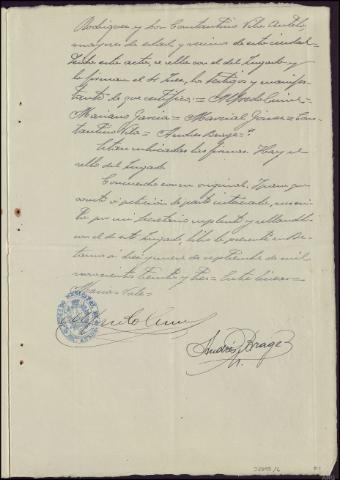 Rodriguez y Don Constantino Vila Antelo,
mayores de edad y vecinos de esta ciudad=
Leida este acta, se sella con el del Juzgado y
la firman el Sr Juez, los testigos y manifes
tante de que certifico.= Alfredo
Mariano Garcia= Marcial Gomez= Cons
tantino Vila= Andres Brage=
Estan rubricadas las firmas. Hay el
sello del Juzgado.
Concuerda con su original. Y para que
conste á petición de parte interesada, auto
por mi Secretario suplente y sellandola
con el de este Juzgado, libro la presente en Be
tanzos á diez y nueve de septiembre de mil
novecientos treinta y tres= Entre lineas=
Vale=
Alfredo
Andrés Brage